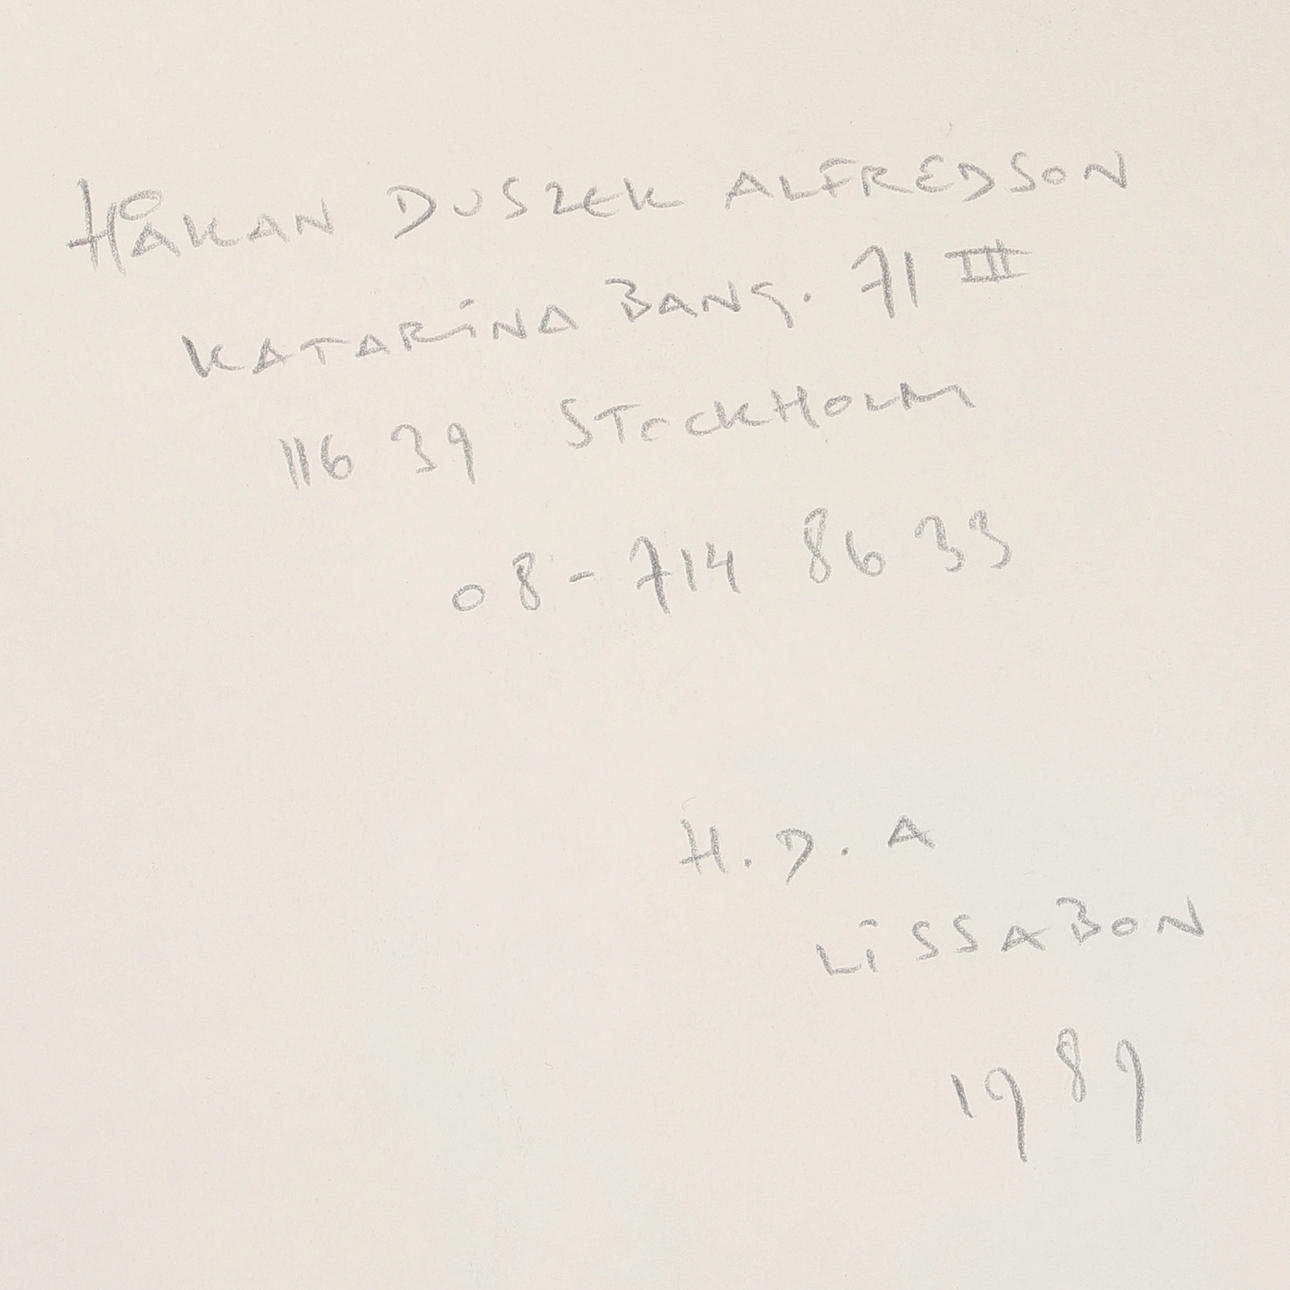 HÅKAN DUSZEK ALFREDSON
KATARINA BANG. 71 III
116 39 STOCKHOLM
08-714 86 33
H.D.A
LISSABON
1989